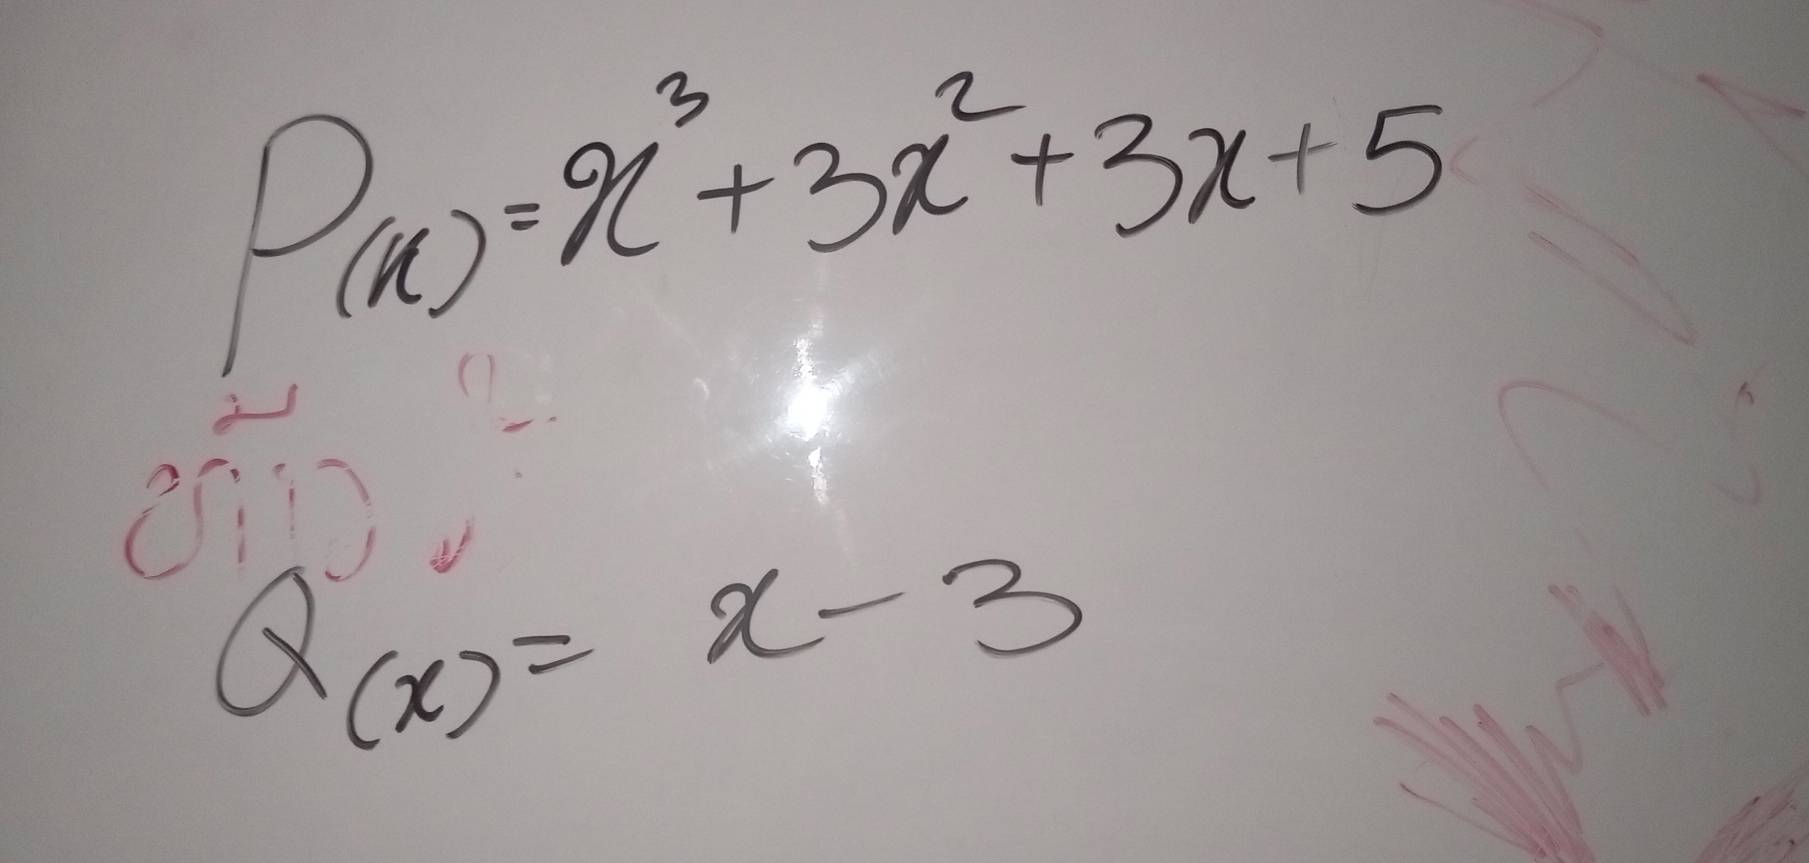 P(x) = x³ + 3x² + 3x + 5
Q(x) = x - 3